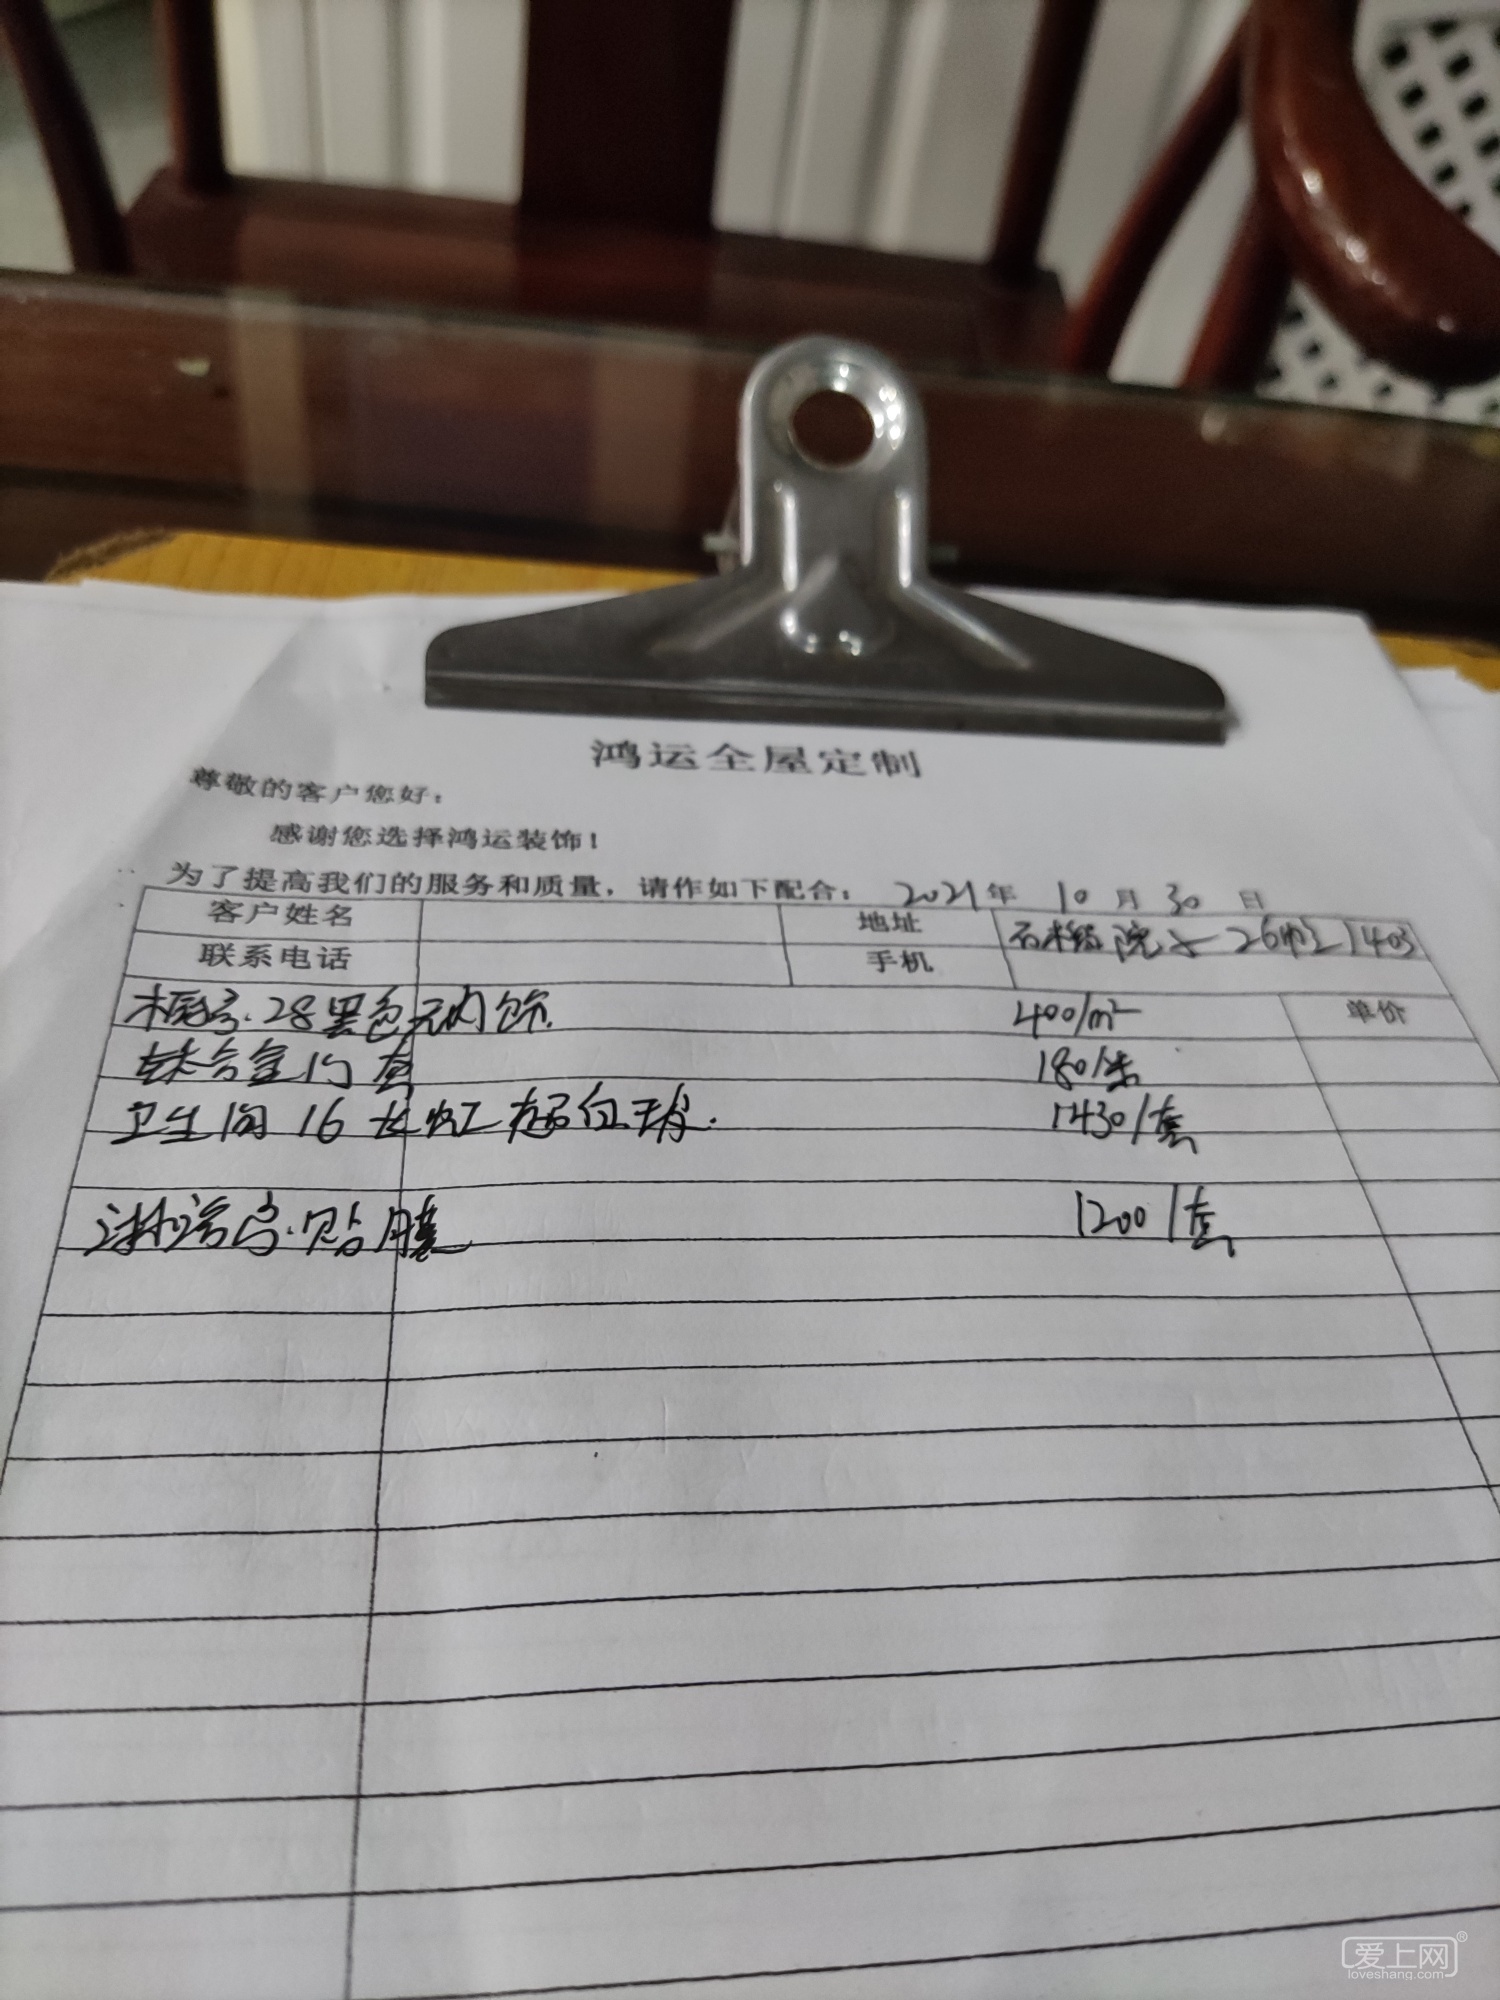 鸿运全屋定制
尊敬的客户您好：
感谢您选择鸿运装饰！
为了提高我们的服务和质量，请作如下配合： 2021年 10月30日
客户姓名 地址 26幢1403
联系电话 手机
28黑色无内饰 400/m² 单价
钛合金门套 180/米
卫生间 16 长虹 1430/套
淋浴房.贴膜 1200/套
爱上网®
loveshang.com